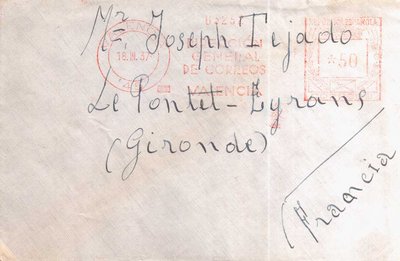 Mr. Joseph Tejado
Le Pontet-Eyrans
(Gironde)
Francia
DIRECCIÓN
GENERAL
DE CORREOS
VALENCIA
ESPAÑOLA
50